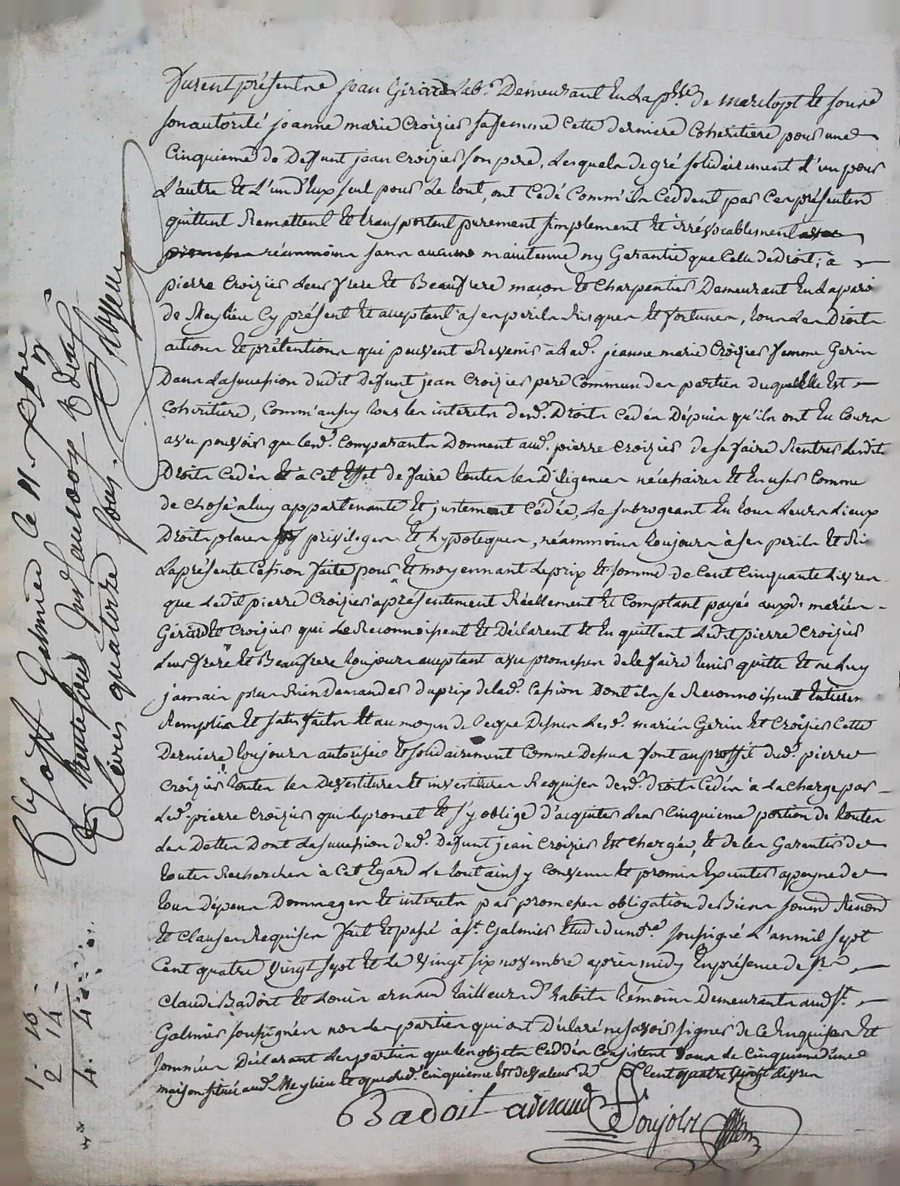 furent présents jean Gérin Lab.r Demeurant En La p.sse de marclopt Et sous
son autorité jeanne marie Croizier sa femme Cette derniere Cohéritiere pour une
Cinquieme de Deffunt jean Croizier son pere, Lesquels de gré solidairement l'un pour
L'autre Et L'un d'Eux seul pour Le tout, ont Cédé Comm'ils Ceddent par Ces présentes
quittent Remettent Et transportent purement simplement Et irrévocablement avec
promesse néammoins sans aucune maintenue ny Garantie que Celle de droit; à
pierre Croizier Leur frere Et Beaufrere maçon Et Charpentier Demeurant En La parr.
de Meylieu Cy présent Et acceptant à ses perils Risques Et fortunes, tous Les Droits
actions Et prétentions qui peuvent Revenir à Lad. jeanne marie Croizier femme Gerin
Dans La succession dudit Deffunt jean Croizier pere Commun des parties duquel Elle Est
Cohéritiere, Comm'aussy tous les interets desd. Droits Cedés Depuis qu'ils ont Eu Cours
avec pouvoir que lesd. Comparants Donnent aud. pierre Croizier de se faire Rentrer Lesdits
Droits Cedés Et à Cet Effet de faire toutes les Diligences nécéssaires Et En user Comme
de Chose à luy appartenante Et justement Cédée, Le subrogeant En tous Leurs Lieux
Droits places privileges Et hypoteques, néammoins toujours à ses perils Et Ris.
La présente Cession faite pour Et moyennant Le prix Et somme de Cent Cinquante Livres
que Ledit pierre Croizier a présentement Réellement Et Comptant payée auxd. mariés
Gérin Et Croizier qui Le Reconnoissent Et Déclarent Et En quittent Ledit pierre Croizier
Leur frere Et Beaufrere toujours acceptant avec promesse de le faire tenir quitte Et ne Luy
jamais plus Rien Demander du prix de lad. Cession Dont ils se Reconnoissent Entieremt
Remplis Et satisfaits Et au moyen de Ce que Dessus Lesd. mariés Gerin Et Croizier Cette
Derniere toujours autorisée Et solidairement Comme Dessus font au proffit dud. pierre
Croizier toutes les Devestitures Et investitures Requises desd. droits Cedés à La Charge par
Led. pierre Croizier qui Le promet Et s'y oblige d'acquiter Les Cinquieme portion de toutes
Les Dettes Dont La succession dud. Deffunt jean Croizier Est Chargée, Et de les Garantir de
toutes Recherches à Cet Egard Le tout ainsy Convenu Et promis Executer a peyne de
tous dépens Dommages Et interets par promesses obligation de Biens soumis Renon
Et Clauses Requises fait Et passé à S.t Galmier Etude du no.re soussigné L'an mil sept
Cent quatre vingt sept Et Le vingt six novembre après midy En présence de S.rs
Claude Badoit Et Louis arnaud tailleurs d'habits témoins Demeurants aud. S.t
Galmier soussignés non Les parties qui ont Déclaré ne savoir signer de Ce Enquises Et
sommées Déclarant Les parties que les objets Ceddés Consistent dans le Cinquieme d'une
maison située aud. Meylieu Et que led. Cinquieme Est de valeur de Cent quatre vingt Livres
Badoit arnaud Poujols
C.lé à S.t Galmier le 11. Xbre
quatorze sous.
1. 10
2 14
4. 4